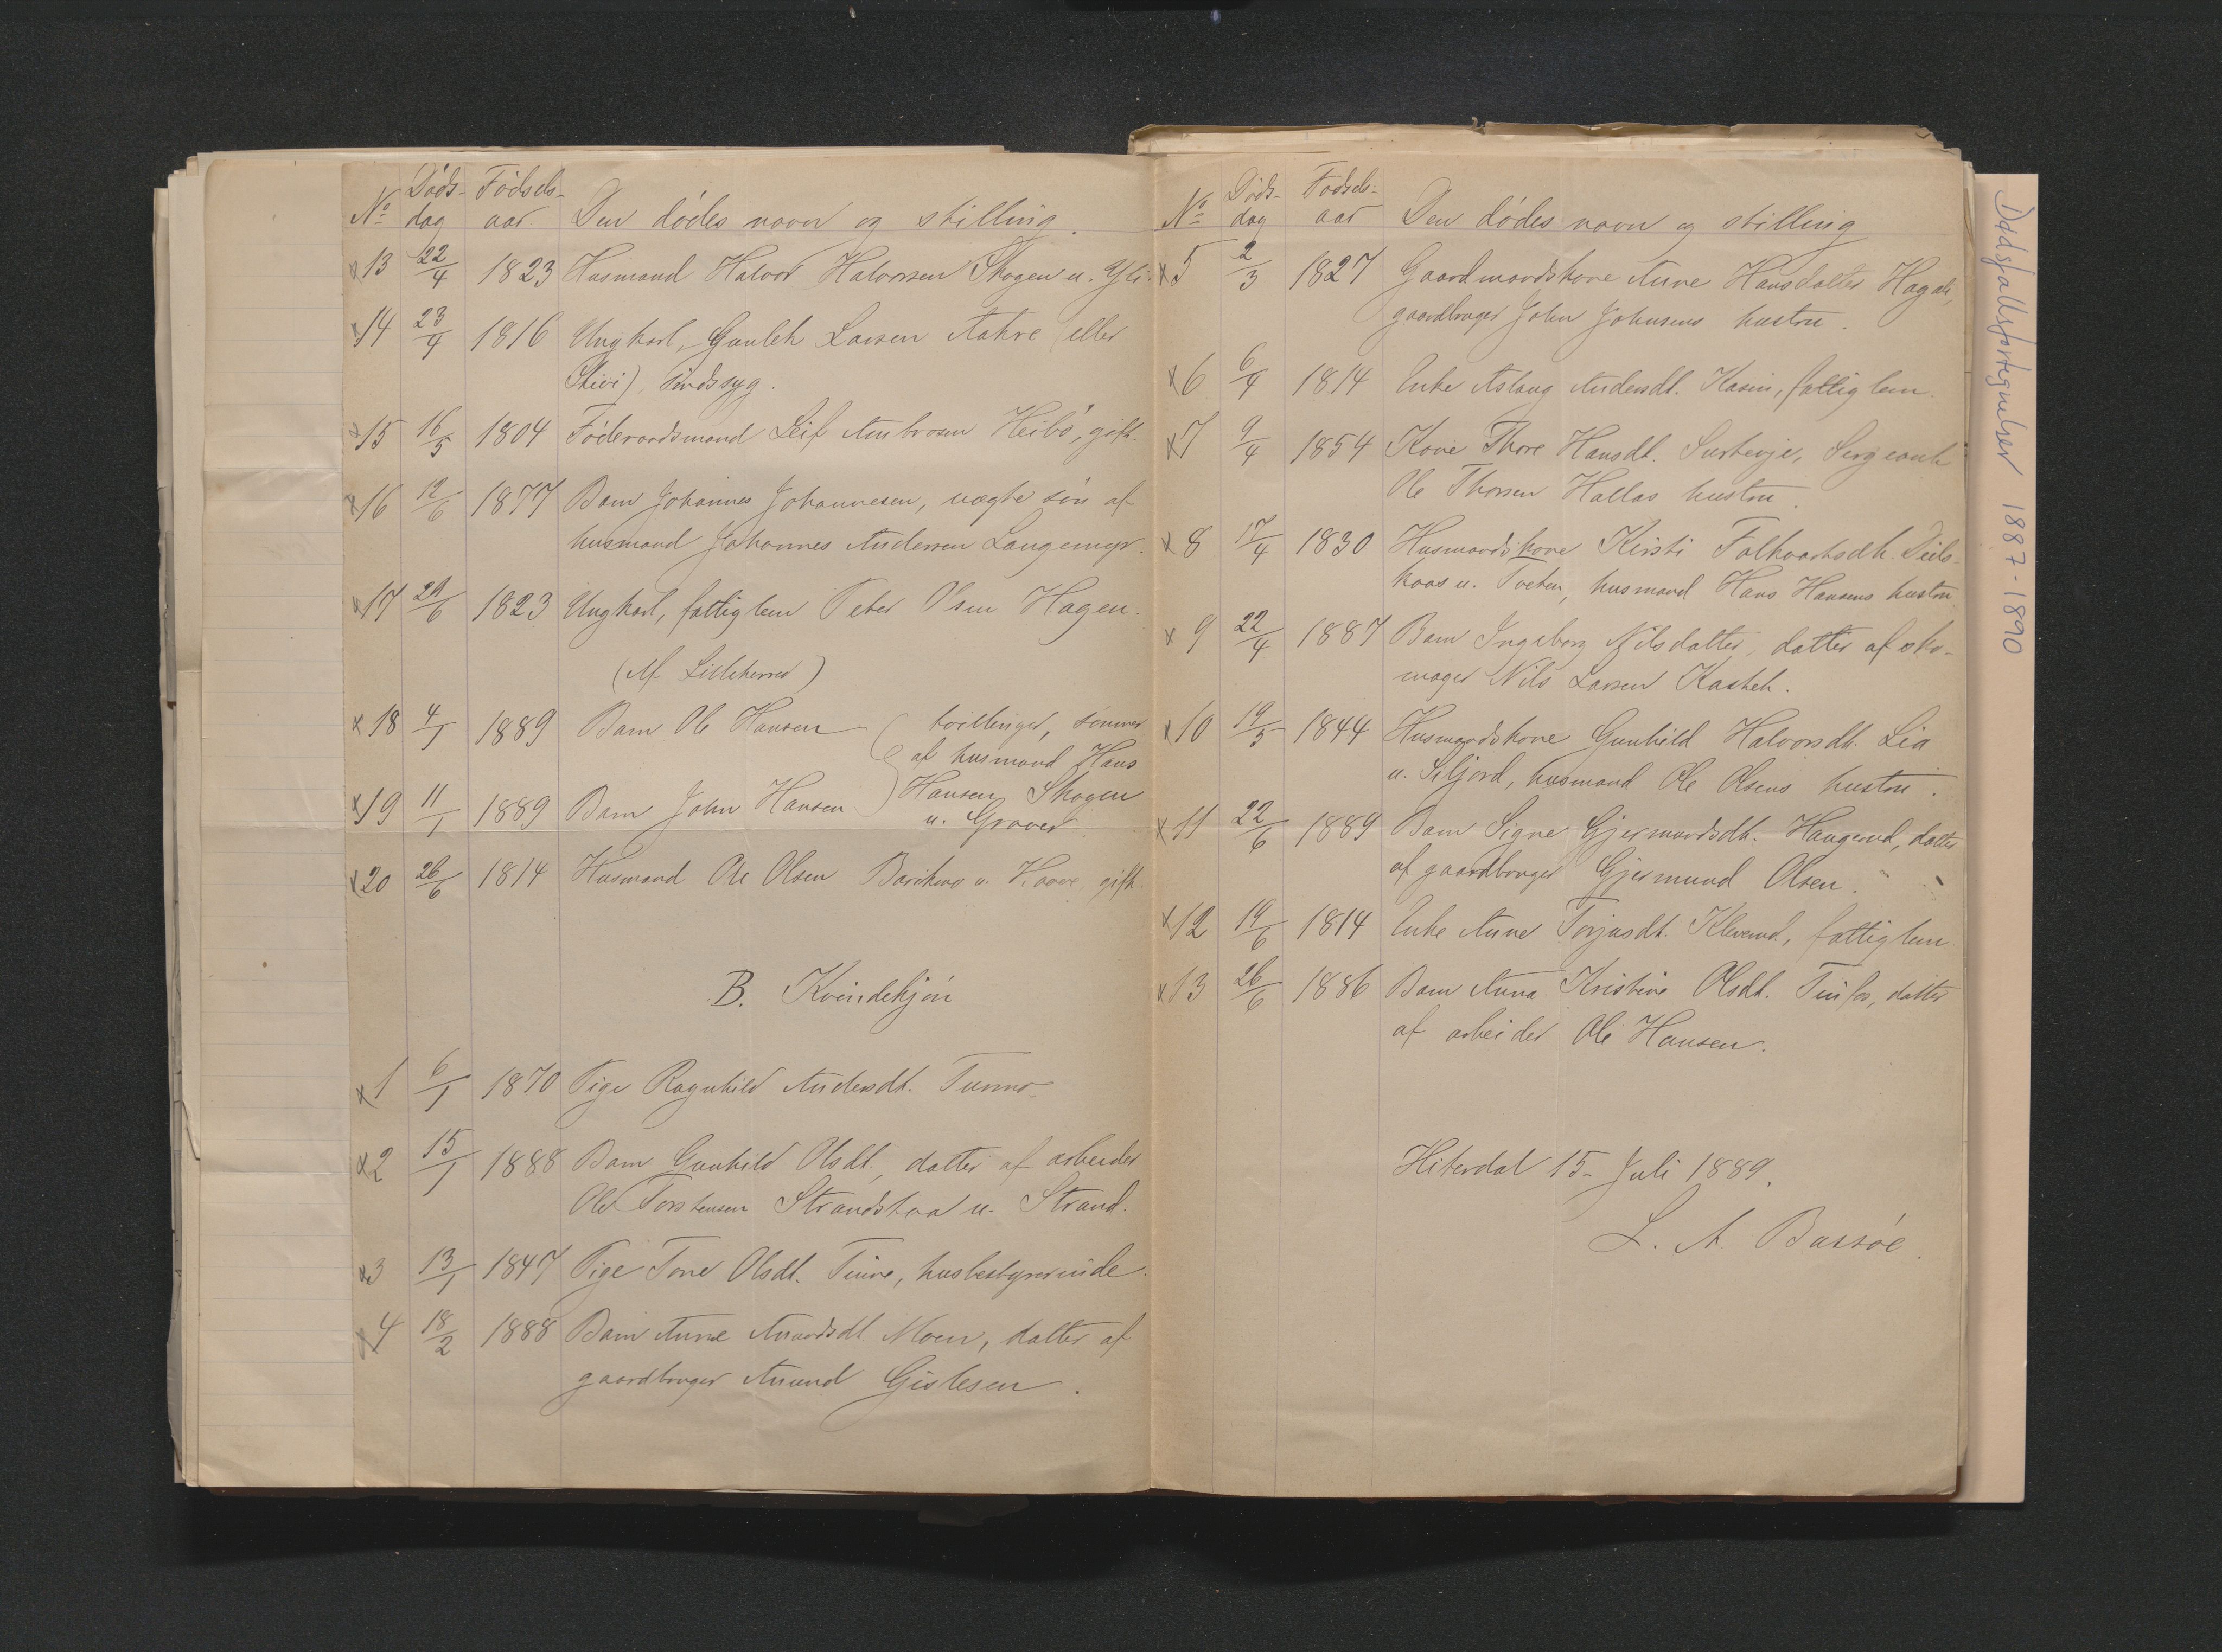 Døds- Fødsels-
No dag aar Den dødes navn og stilling.
x13 22/4 1823 Husmand Halvor Halvorsen Skogen u. Yli.
x14 23/4 1816 Ungkarl, Gunleik Larsen Aakre (eller
Skeie), sindssyg.
x15 16/5 1804 Föderaadsmand Leif Ambrosen Heibö, gift.
x16 12/6 1877 Barn Johannes Johannesen, uægte sön af
husmand Johannes Andersen Langemyr.
x17 29/6 1823 Ungkarl, fattiglem Peter Olsen Hagen.
(Af Lilleherred)
x18 4/1 1889 Barn Ole Hansen tvillinger, sönner
af husmand Hans
x19 11/1 1889 Barn John Hansen Hansen Skogen
u. Graver
x20 26/6 1814 Husmand Ole Olsen u. gift.
B. Kvindekjön
x1 6/1 1870 Pige Ragnhild Andersdt. Tunmo
x2 15/1 1888 Barn Gunhild Olsdt., datter af arbeider
Ole Torstensen Strandstaa u. Strand.
x3 13/1 1847 Pige Tone Olsdt. Tinne, husbestyrerinde.
x4 18/2 1888 Barn Anne Anundsdt Moen, datter af
gaardbruger Anund Gislesen.
Døds- Fødsels-
No dag aar Den dødes navn og stilling
x5 2/3 1827 Gaardmandskone Anne Hansdatter Hagale,
gaardbruger John Johnsens hustru.
x6 6/4 1814 Enke Aslaug Andersdt. Kasin, fattiglem.
x7 9/4 1854 Kone Thore Hansdt. Surtevje, Sergeant
Ole Thorsen Hallas hustru.
x8 17/4 1830 Husmandskone Kirsti Folkvartsdt. Deils-
kaas u. Tveten, husmand Hans Hansens hustru
x9 22/4 1887 Barn Ingeborg Nilsdatter, datter af sko-
mager Nils Larsen Kasteh.
x10 19/5 1844 Husmandskone Gunhild Halvorsdt. Lia
u. Siljord, husmand Ole Olsens hustru.
x11 22/6 1889 Barn Signe Gjermundsdt. Haugerud, datter
af gaardbruger Gjermund Olsen.
x12 19/6 1814 Enke Anne Torjusdt. Kleverud, fattiglem
x13 26/6 1886 Barn Anna Kristine Olsdt. Tinfos, datter
af arbeider Ole Hansen.
Hiterdal 15. Juli 1889.
L. A. Bassöe.
Dødsfallsfortegnelser 1887-1890